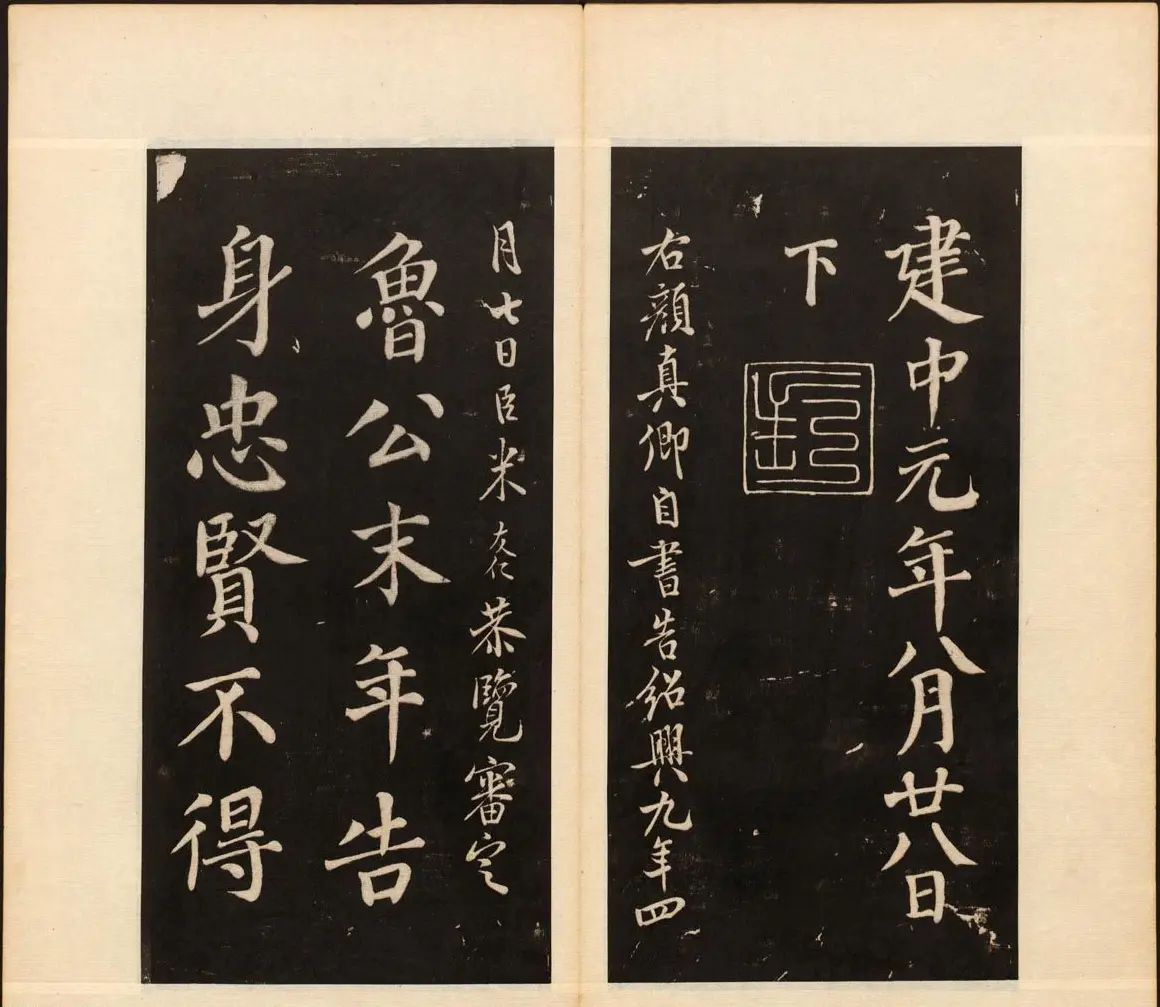 建中元年八月廿八日
下
右顏真卿自書告紹興九年四
月七日臣米友仁恭覽審定
魯公末年告
身忠賢不得